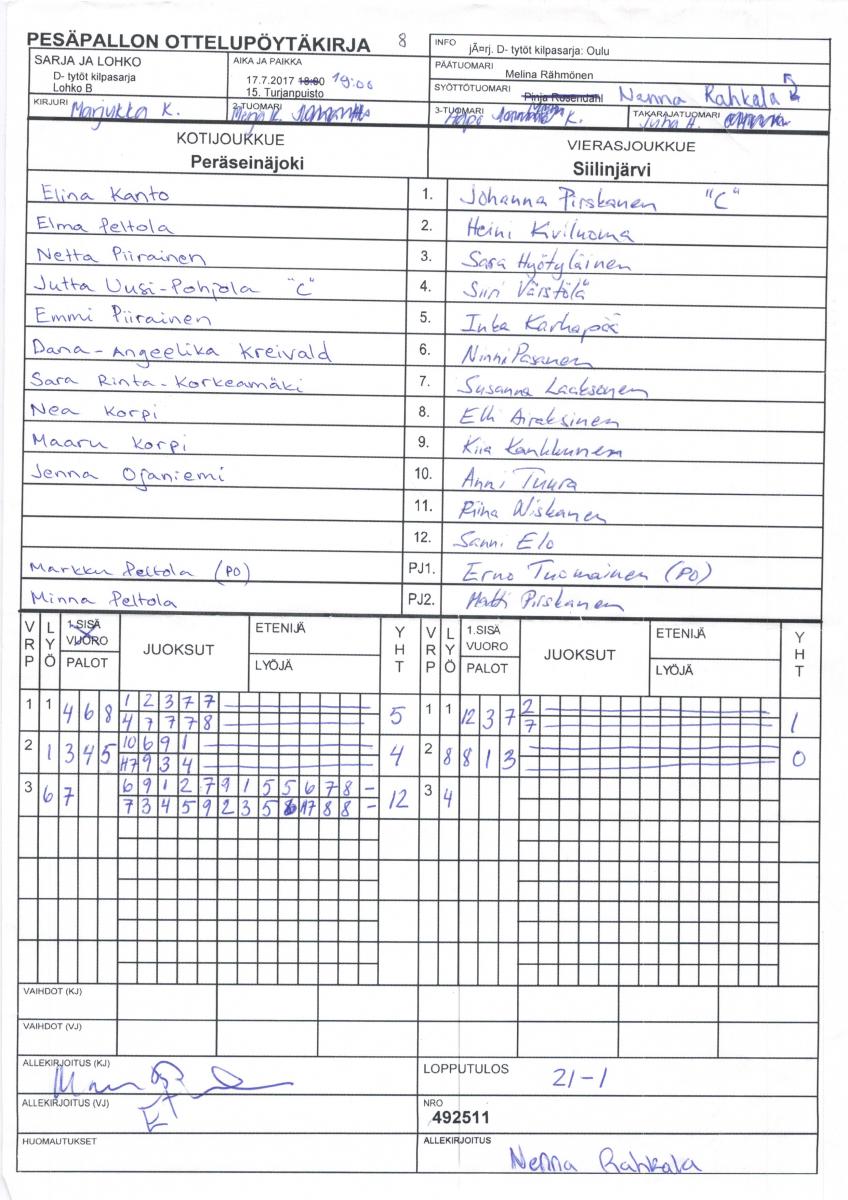 PESÄPALLON OTTELUPÖYTÄKIRJA 8
INFO jÃ¤rj. D- tytöt kilpasarja: Oulu
SARJA JA LOHKO
D- tytöt kilpasarja
Lohko B
AIKA JA PAIKKA
17.7.2017 18:00 19:00
15. Turjanpuisto
PÄÄTUOMARI
Melina Rähmönen
SYÖTTÖTUOMARI
Pinja Rosendahl Nenna Rahkala
KIRJURI Marjukka K.
2-TUOMARI Merja K.
3-TUOMARI K.
TAKARAJATUOMARI Juha H.
KOTIJOUKKUE
Peräseinäjoki
VIERASJOUKKUE
Siilinjärvi
Elina Kanto 1. Johanna Pirskanen "C"
Elma Peltola 2. Heini Kiviluoma
Netta Piirainen 3. Sara Hyötyläinen
Jutta Uusi-Pohjola "C" 4. Siiri Värstölä
Emmi Piirainen 5. Inka Karhapää
Dana-Angeelika Kreivald 6. Ninni Pasanen
Sara Rinta-Korkeamäki 7. Susanna Laaksonen
Nea Korpi 8. Elli Airaksinen
Maaru Korpi 9. Kiia Kankkunen
Jenna Ojaniemi 10. Anni Tuura
11. Riina Niskanen
12. Sanni Elo
Markku Peltola (PO) PJ1. Erno Tuomainen (PO)
Minna Peltola PJ2. Matti Pirskanen
VRP LYÖ 1.SISÄ VUORO PALOT JUOKSUT ETENIJÄ LYÖJÄ YHT VRP LYÖ 1.SISÄ VUORO PALOT JUOKSUT ETENIJÄ LYÖJÄ YHT
1 1 4 6 8 1 2 3 7 7 5 1 1 12 3 7 2 1
4 7 7 7 8 7
2 1 3 4 5 10 6 9 1 4 2 8 8 1 3 0
9 3 4
3 6 7 6 9 1 2 7 9 1 5 5 6 7 8 - 12 3 4
7 3 4 5 9 2 3 5 8 8 -
VAIHDOT (KJ)
VAIHDOT (VJ)
ALLEKIRJOITUS (KJ)
LOPPUTULOS 21-1
ALLEKIRJOITUS (VJ) ET
NRO
492511
HUOMAUTUKSET
ALLEKIRJOITUS
Nenna Rahkala